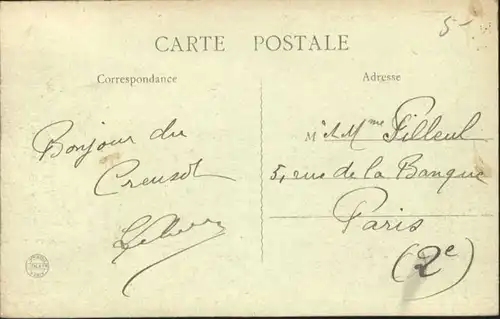 5-
CARTE POSTALE
Correspondance
Adresse
Bonjour du
Creusot
M r & Mme Filleul
5, rue de la Banque
Paris
(2e)